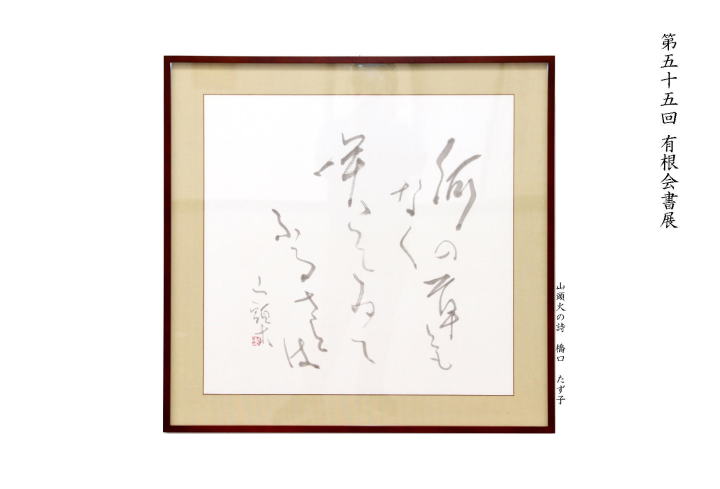 第五十五回 有根会書展
山頭火の詩 橋口 たず子
何の草とも
なく
咲いてゐて
ふるさとは
山頭火